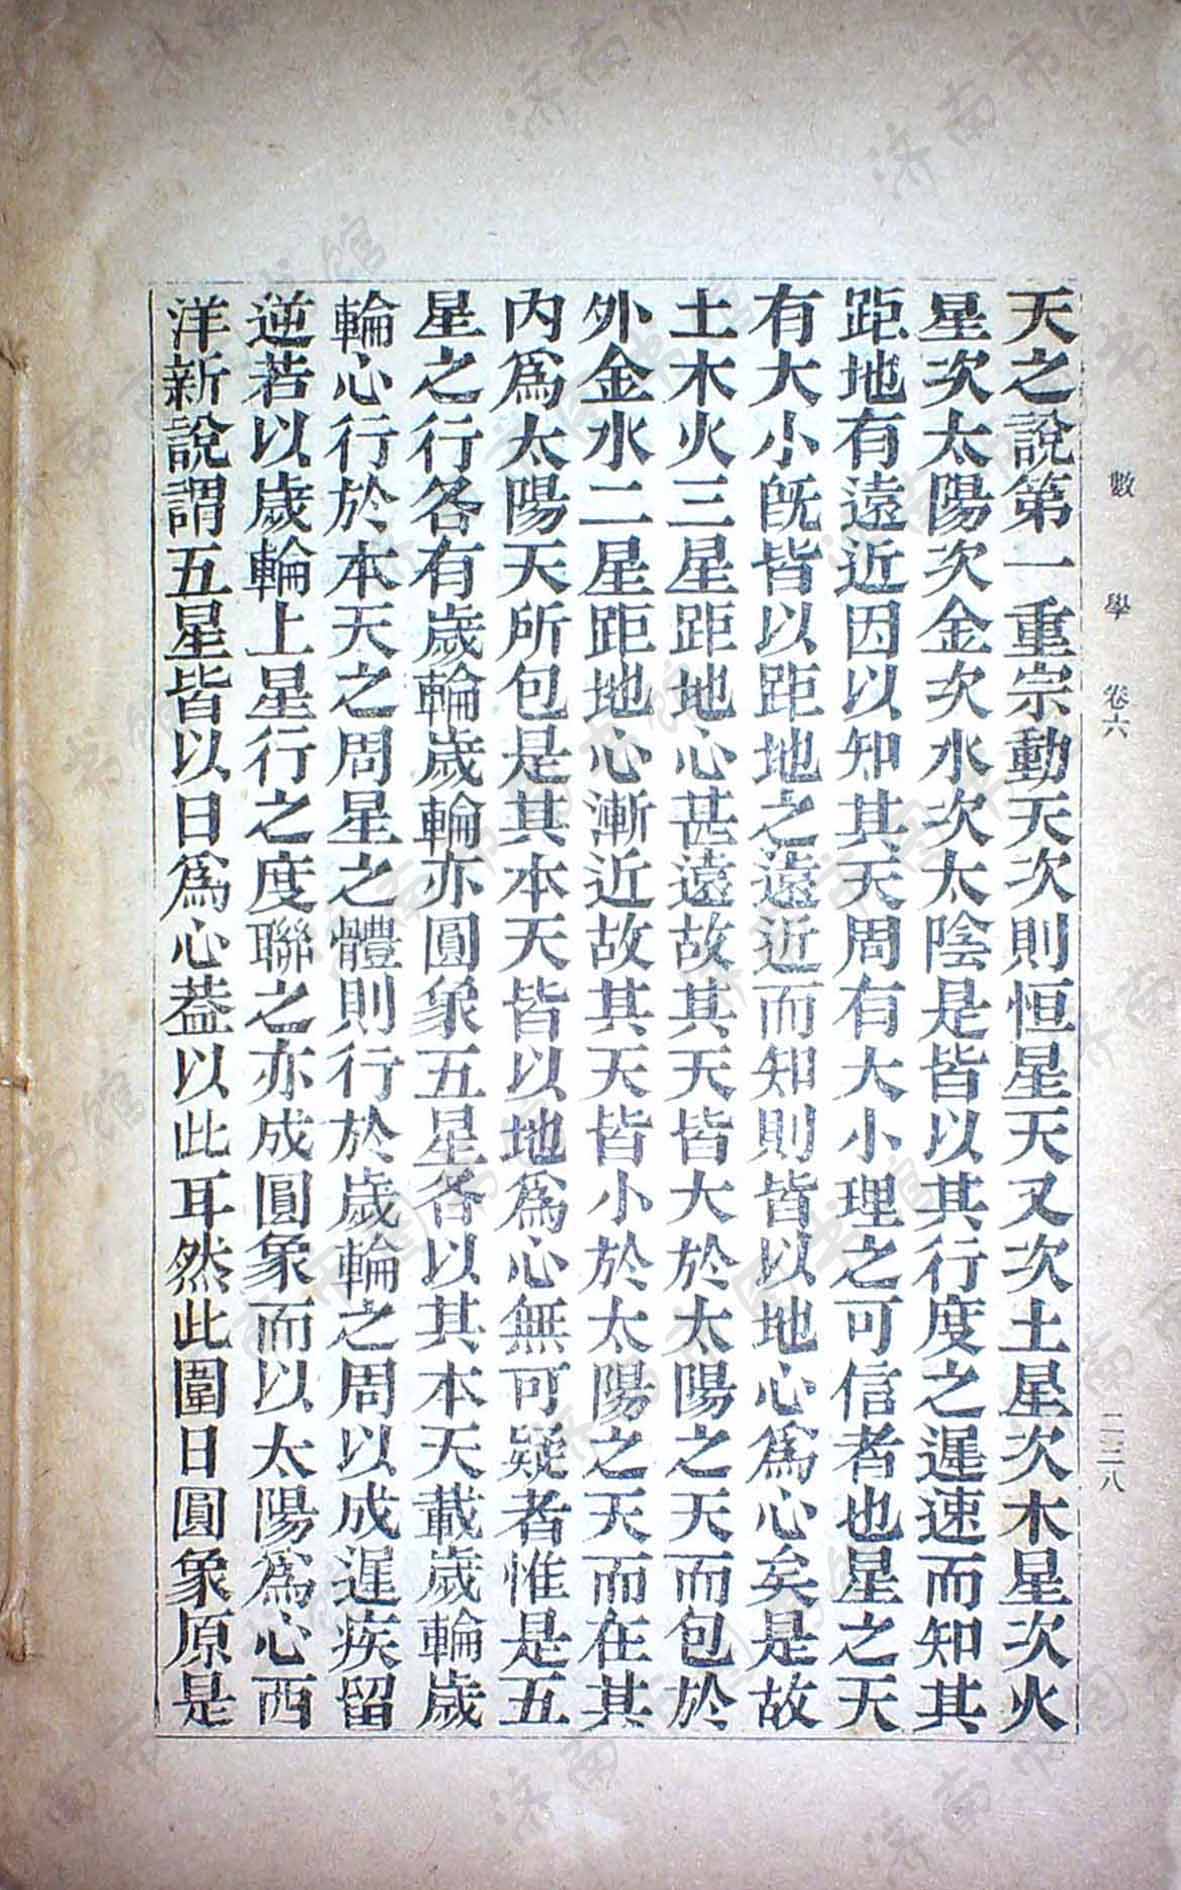 數學 卷六 二三八
天之說第一重宗動天次則恒星天又次土星次木星次火
星次太陽次金次水次太陰是皆以其行度之遲速而知其
距地有遠近因以知其天周有大小理之可信者也星之天
有大小旣皆以距地之遠近而知則皆以地心爲心矣是故
土木火三星距地心甚遠故其天皆大於太陽之天而包於
外金水二星距地心漸近故其天皆小於太陽之天而在其
內爲太陽天所包是其本天皆以地爲心無可疑者惟是五
星之行各有歲輪歲輪亦圓象五星各以其本天載歲輪歲
輪心行於本天之周星之體則行於歲輪之周以成遲疾留
逆若以歲輪上星行之度聯之亦成圓象而以太陽爲心西
洋新說謂五星皆以日爲心葢以此耳然此圍日圓象原是
济南市图书馆